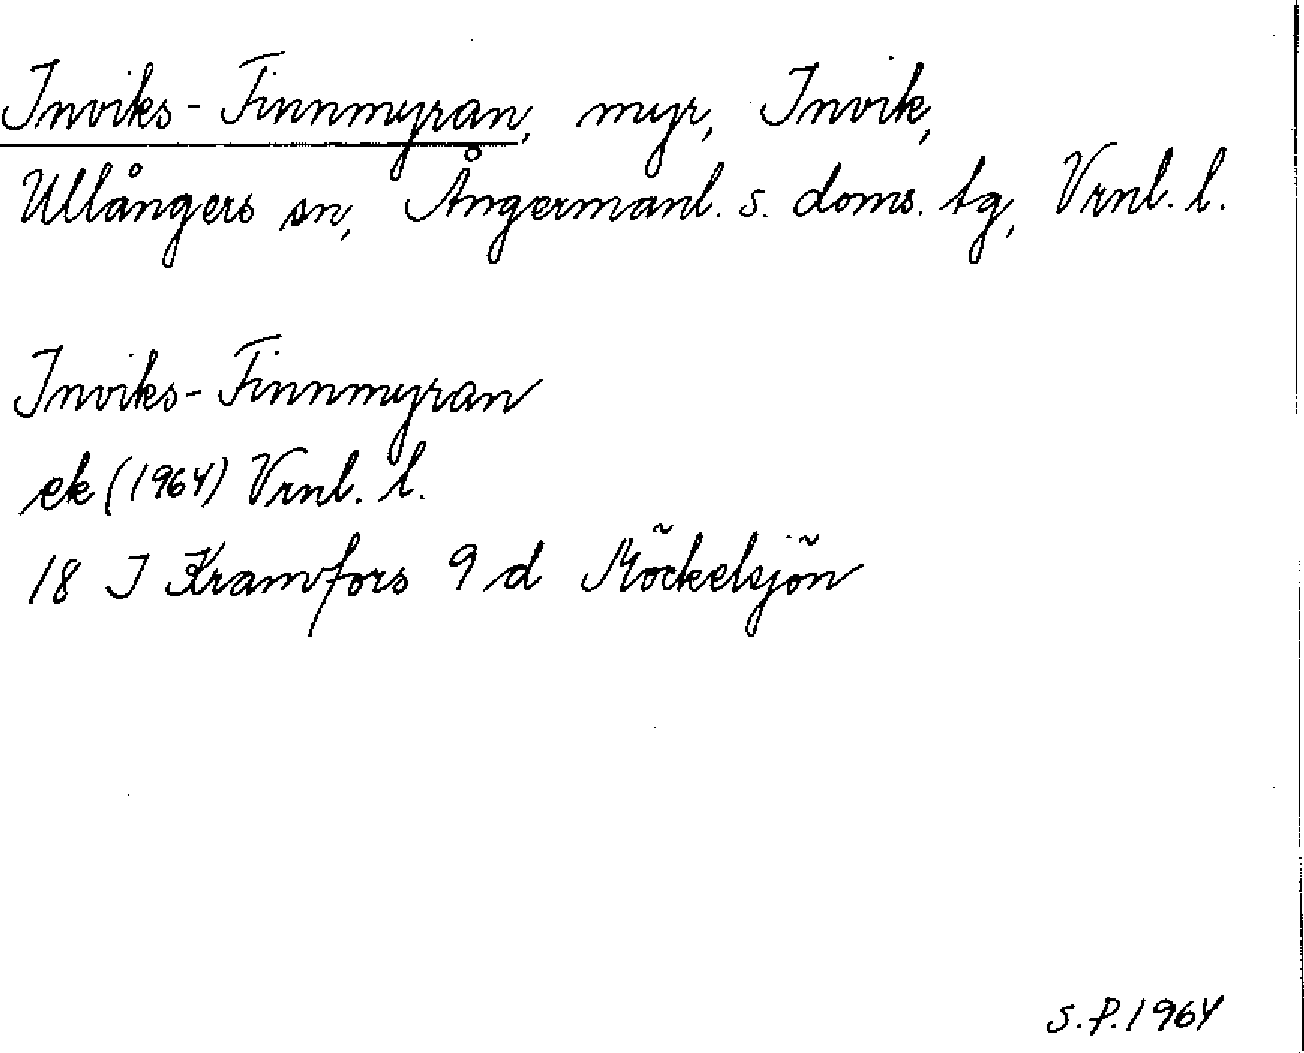 Inviks-Finnmyran, myr, Invik,
Ullångers sn, Ångermanl. s. doms. tg, Vrnl. l.
Inviks-Finnmyran
ek (1964) Vrnl. l.
18 I Kramfors 9 d Möckelsjön
S.P. 1964